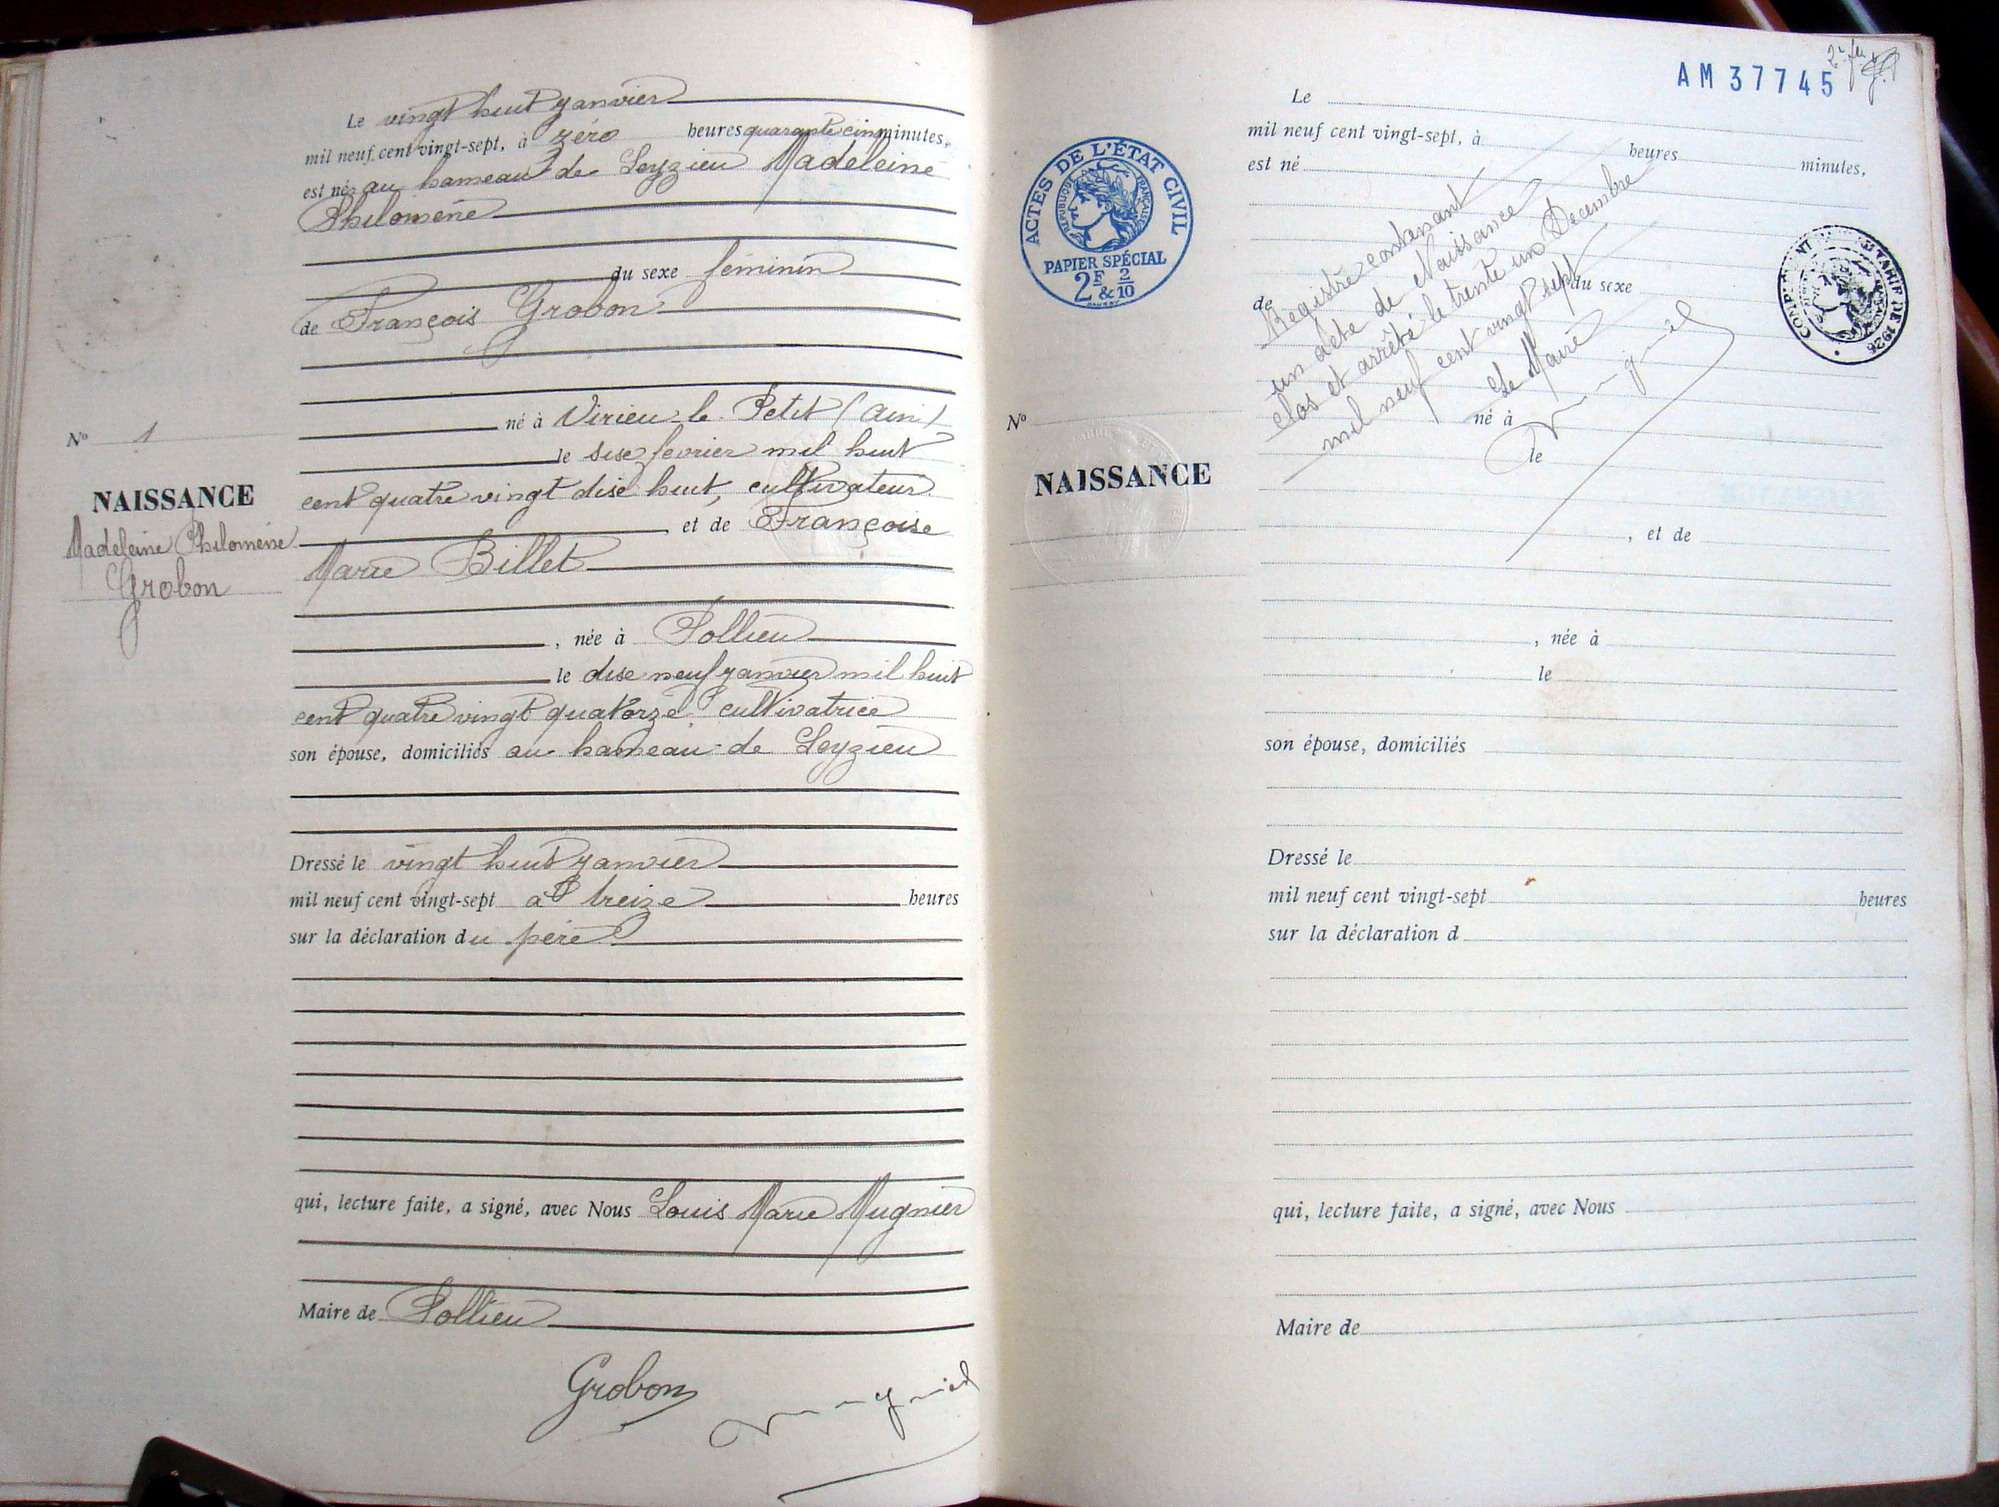 Le vingt huit janvier
mil neuf cent vingt-sept, à zéro heures quarante cinq minutes,
est née au hameau de Leyzieu Madeleine
Philomène
du sexe féminin
de François Grobon
né à Virieu le Petit (Ain)
le dise février mil huit
cent quatre vingt dise huit, cultivateur
et de Françoise
Marie Billet
, née à Pollieu
le dise neuf janvier mil huit
cent quatre vingt quatorze cultivatrice
son épouse, domiciliés au hameau de Leyzieu
Dressé le vingt huit janvier
mil neuf cent vingt-sept à treize heures
sur la déclaration du père
qui, lecture faite, a signé, avec Nous Louis Marie Mugnier
Maire de Pollieu
Grobon
Mugnier
N° 1
NAISSANCE
Madeleine Philomène
Grobon
AM 37745
ACTES DE L'ÉTAT CIVIL
RÉPUBLIQUE FRANÇAISE
PAPIER SPÉCIAL
2F & 2/10
TARIF DE 1926
N°
NAISSANCE
Le
mil neuf cent vingt-sept, à heures minutes,
est né
du sexe
de
né à
le
, et de
, née à
le
son épouse, domiciliés
Dressé le
mil neuf cent vingt-sept heures
sur la déclaration d
qui, lecture faite, a signé, avec Nous
Maire de
Registre contenant
un acte de Naissance
clos et arrêté le trente un Décembre
mil neuf cent vingt sept
Le Maire
Mugnier